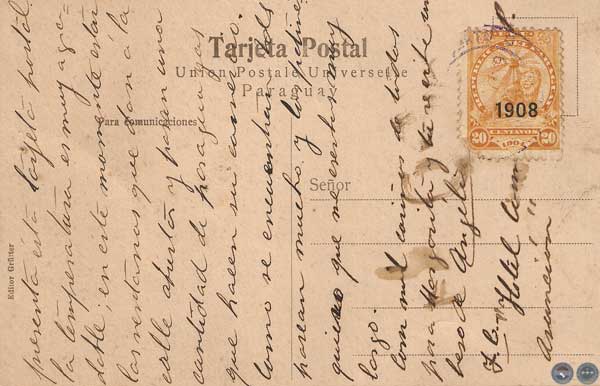 Tarjeta Postal
Union Postale Universelle
Paraguay
Para comunicaciones
Señor
Editor Grütter
1908
20
CENTAVOS
20
1904
presenta esta tarjeta postal.
la temperatura es muy agra-
dable, en este momento están
las ventanas que dan a la
calle abiertas y pasan una
cantidad de paraguayas
que hacen su carrera.
Como se encuentran Vds
pasean mucho. Y los
quiero que me escribas muy
largo.
Con mil cariños a todos
para Margarita y tu recibe un
beso de Angela
Hotel
Asunción"